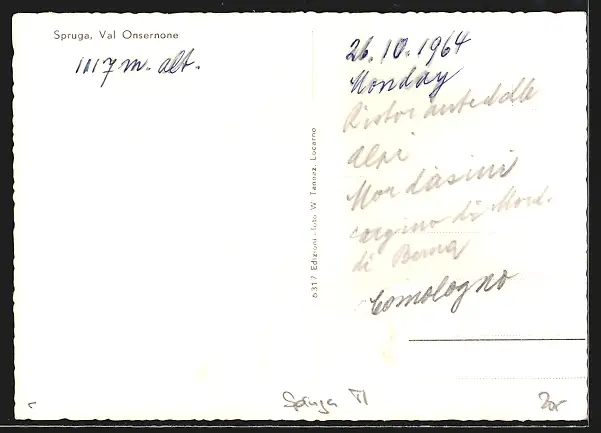 Spruga, Val Onsernone
1117 m. alt.
26.10.1964
Monday
Ristorante delle
Alpi
Mordasini
cugino di Mord.
di Berna
Comologno
6317 Edizioni - foto W. Tannaz, Locarno
Spruga TI